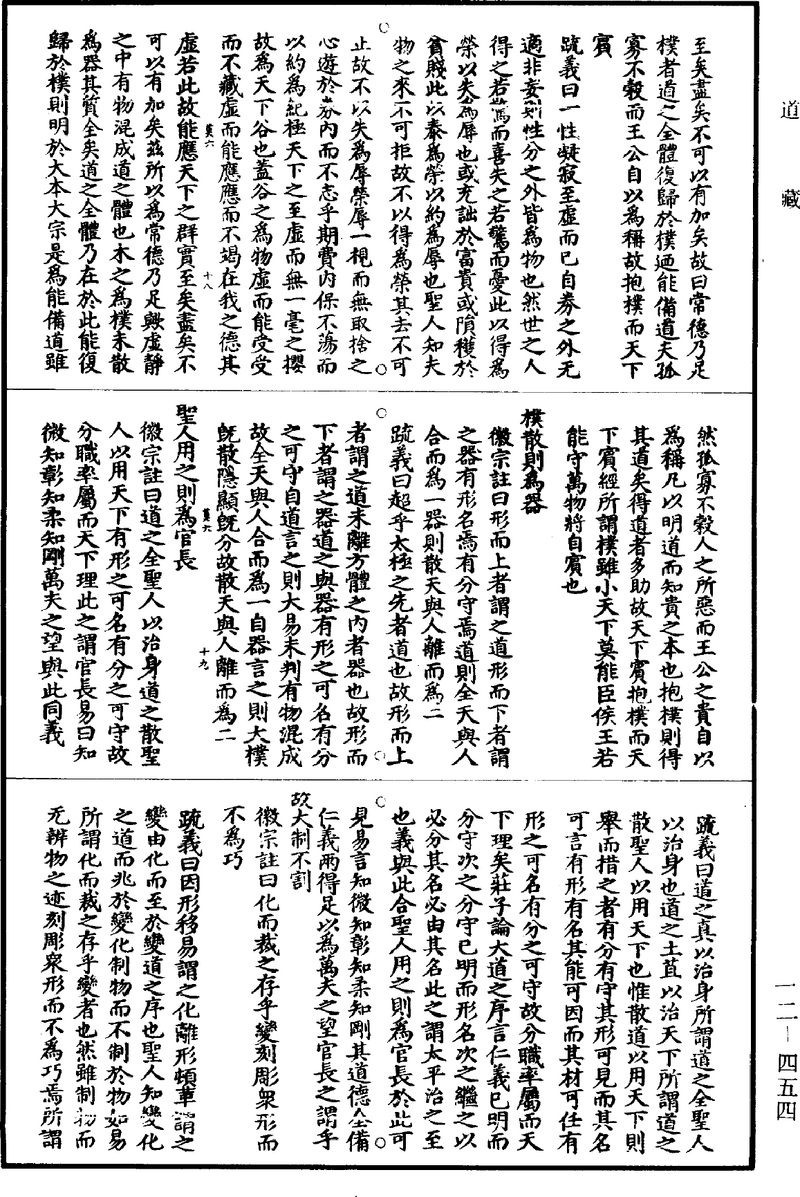 道藏
至矣盡矣不可以有加矣故曰常德乃足
樸者道之全體復歸於樸迺能備道夫孤
寡不穀而王公自以為稱故抱樸而天下
賓
疏義曰一性凝寂至虛而已自券之外无
適非妄則性分之外皆為物也然世之人
得之若驚而喜失之若驚而憂此以得為
榮以失為辱也或充詘於富貴或隕穫於
貧賤此以泰為榮以約為辱也聖人知夫
物之來不可拒故不以得為榮其去不可
止故不以失為辱榮辱一視而無取捨之
心遊於券內而不志乎期費內保不蕩而
以約為紀極天下之至虛而無一毫之攖
故為天下谷也蓋谷之為物虛而能受受
而不藏虛而能應應而不竭在我之德其
虛若此故能應天下之群實至矣盡矣不
莫六
十八
可以有加矣茲所以為常德乃足歟虛靜
之中有物混成道之體也木之為樸未散
為器其質全矣道之全體乃在於此能復
歸於樸則明於大本大宗是為能備道雖
然孤寡不穀人之所惡而王公之貴自以
為稱凡以明道而知貴之本也抱樸則得
其道矣得道者多助故天下賓抱樸而天
下賓經所謂樸雖小天下莫能臣侯王若
能守萬物將自賓也
樸散則為器
徽宗註曰形而上者謂之道形而下者謂
之器有形名焉有分守焉道則全天與人
合而為一器則散天與人離而為二
疏義曰超乎太極之先者道也故形而上
者謂之道未離方體之內者器也故形而
下者謂之器道之與器有形之可名有分
之可守自道言之則大易未判有物混成
故全天與人合而為一自器言之則大樸
旣散隱顯旣分故散天與人離而為二
莫六
十九
聖人用之則為官長
徽宗註曰道之全聖人以治身道之散聖
人以用天下有形之可名有分之可守故
分職率屬而天下理此之謂官長易曰知
微知彰知柔知剛萬夫之望與此同義
疏義曰道之真以治身所謂道之全聖人
以治身也道之土苴以治天下所謂道之
散聖人以用天下也惟散道以用天下則
舉而措之者有分有守其形可見而其名
可言有形有名其能可因而其材可任有
形之可名有分之可守故分職率屬而天
下理矣莊子論大道之序言仁義已明而
分守次之分守已明而形名次之繼之以
必分其名必由其名此之謂太平治之至
也義與此合聖人用之則為官長於此可
見易言知微知彰知柔知剛其道德全備
仁義兩得足以為萬夫之望官長之謂乎
故大制不割
徽宗註曰化而裁之存乎變刻彫衆形而
不為巧
疏義曰因形移易謂之化離形頓革謂之
變由化而至於變道之序也聖人知變化
之道而兆於變化制物而不制於物如易
所謂化而裁之存乎變者也然雖制物而
无辨物之迹刻彫衆形而不為巧焉所謂
一二-四五四